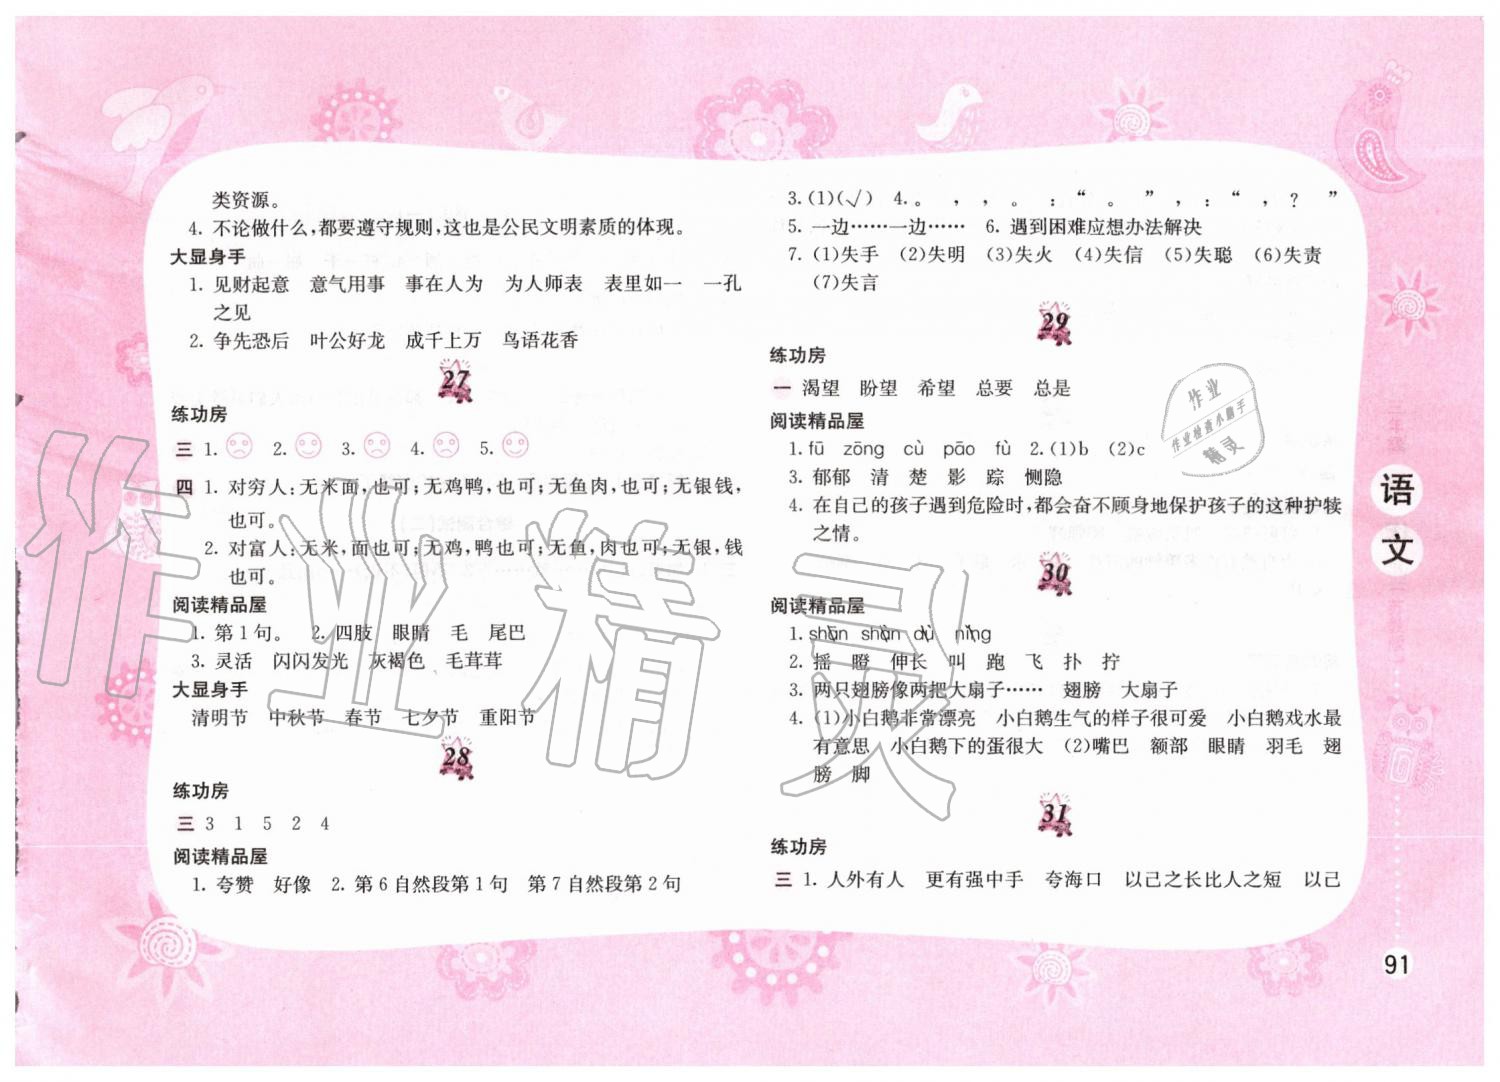 类资源。
4. 不论做什么,都要遵守规则,这也是公民文明素质的体现。
大显身手
1. 见财起意 意气用事 事在人为 为人师表 表里如一 一孔
之见
2. 争先恐后 叶公好龙 成千上万 鸟语花香
27
练功房
三 1. 2. 3. 4. 5.
四 1. 对穷人:无米面,也可;无鸡鸭,也可;无鱼肉,也可;无银钱,
也可。
2. 对富人:无米,面也可;无鸡,鸭也可;无鱼,肉也可;无银,钱
也可。
阅读精品屋
1. 第1句。 2. 四肢 眼睛 毛 尾巴
3. 灵活 闪闪发光 灰褐色 毛茸茸
大显身手
清明节 中秋节 春节 七夕节 重阳节
28
练功房
三 3 1 5 2 4
阅读精品屋
1. 夸赞 好像 2. 第6自然段第1句 第7自然段第2句
3. (1)(√) 4. 。 , , 。 : “ 。 ” , : “ , ? ”
5. 一边……一边…… 6. 遇到困难应想办法解决
7. (1)失手 (2)失明 (3)失火 (4)失信 (5)失聪 (6)失责
(7)失言
29
练功房
一 渴望 盼望 希望 总要 总是
阅读精品屋
1. fū zōng cù pāo fù 2. (1)b (2)c
3. 郁郁 清 楚 影 踪 恻隐
4. 在自己的孩子遇到危险时,都会奋不顾身地保护孩子的这种护犊
之情。
30
阅读精品屋
2. 摇 瞪 伸长 叫 跑 飞 扑 拧
3. 两只翅膀像两把大扇子…… 翅膀 大扇子
4. (1)小白鹅非常漂亮 小白鹅生气的样子很可爱 小白鹅戏水最
有意思 小白鹅下的蛋很大 (2)嘴巴 额部 眼睛 羽毛 翅
膀 脚
31
练功房
三 1. 人外有人 更有强中手 夸海口 以己之长比人之短 以己
三年级
语
文
91
作业精灵
作业
作业检查小助手
精灵